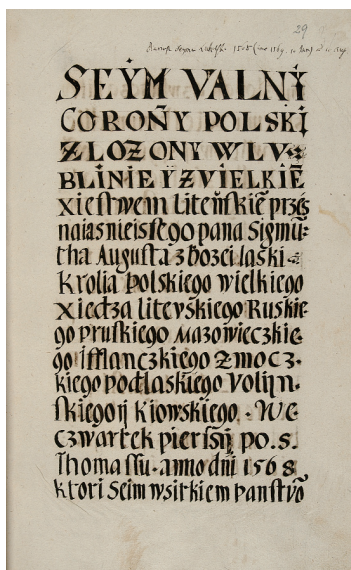 29
SEYM VALNY
COROŃY POLSKI
ZLOZONY W LV
BLINIE Y Z VIELKIĒ
Xiestwem Liteńskiē przes
naiasnieissego pana Sigmū
tha Augusta z bozei laski
Krolia Polskiego wielkiego
Xiedza litevskiego Ruskie
go pruskiego Mazowieczkie
go ifflanczkiego Zmocz
kiego podlaskiego Volijn
skiego ij Kiowskiego We
czwartek pierssij po.s.
Thomassu. anno dni 1568
ktori Seim wsitkiem panstvō